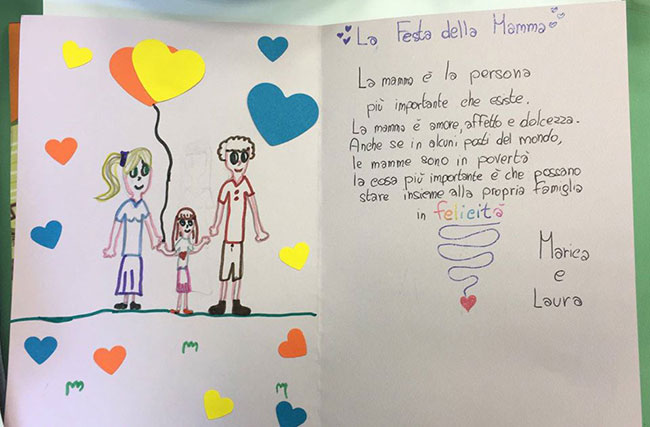 La Festa della Mamma
La mamma è la persona
più importante che esiste.
La mamma è amore, affetto e dolcezza.
Anche se in alcuni posti del mondo,
le mamme sono in povertà
la cosa più importante è che possano
stare insieme alla propria famiglia
in felicità
Marica
e
Laura